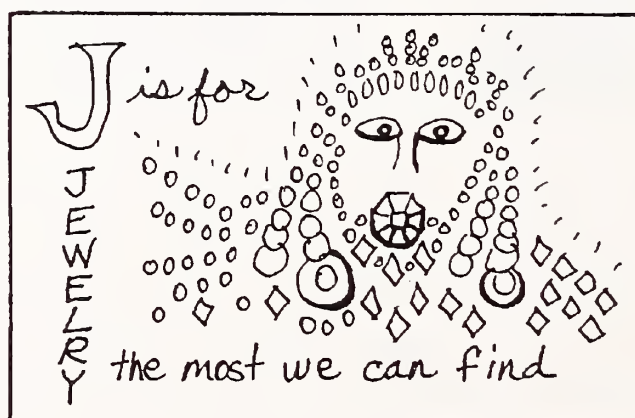 J is for
JEWELRY
the most we can find